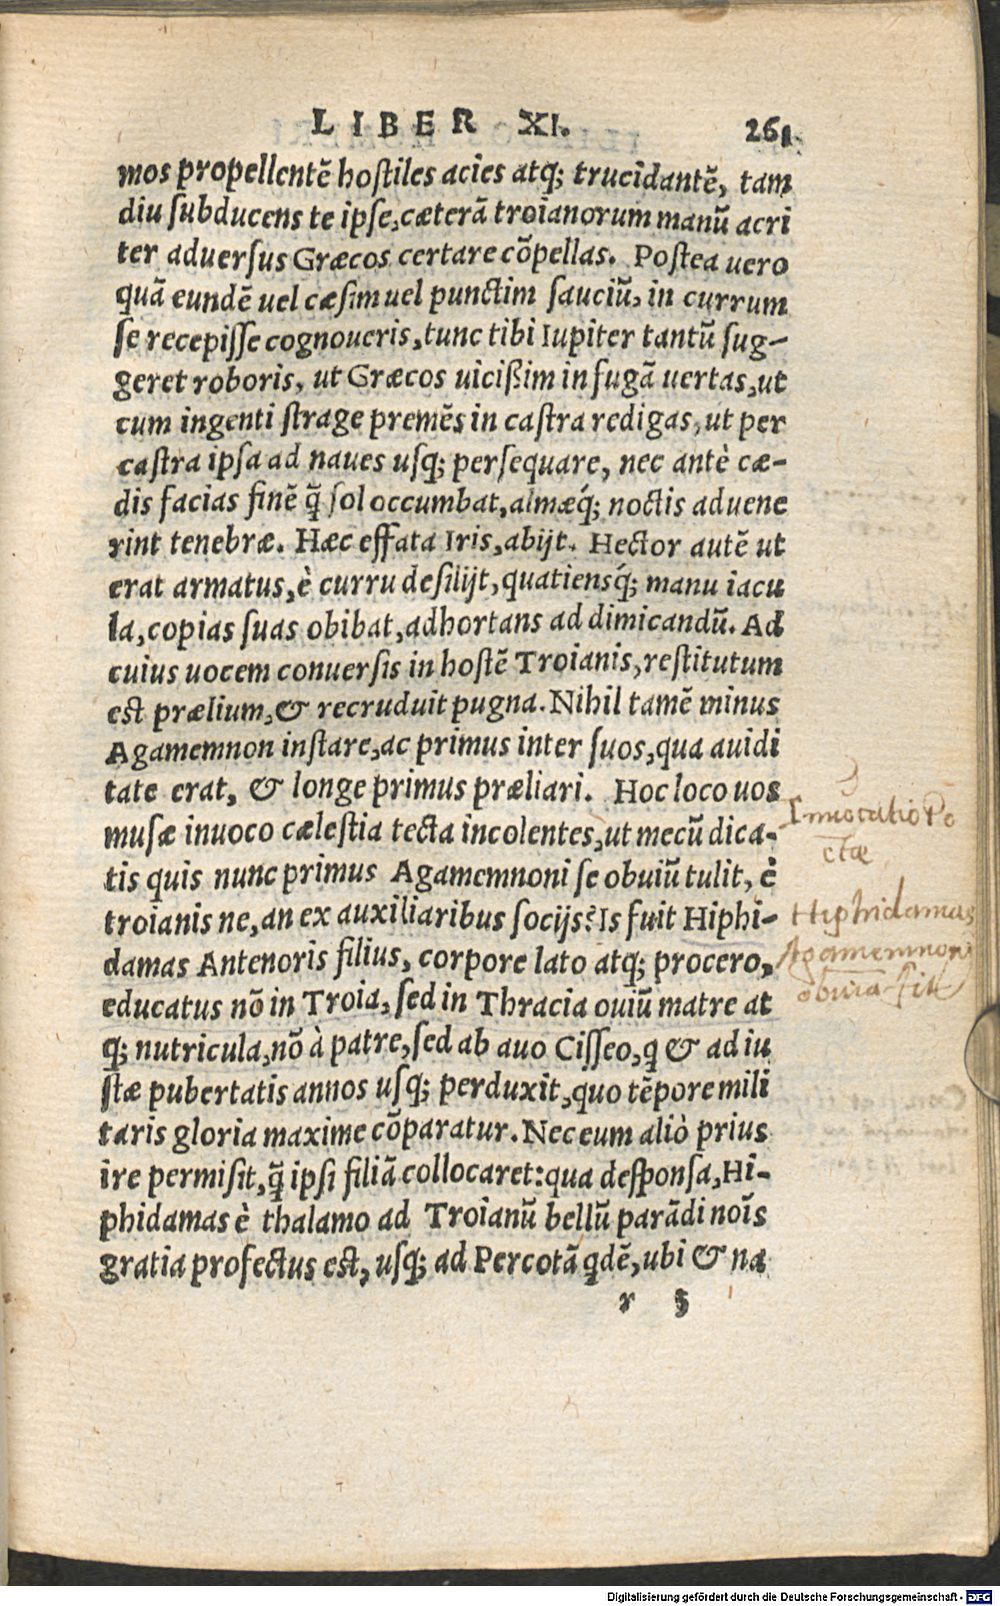 LIBER XI. 261
mos propellentē hostiles acies atq; trucidantē, tam
diu subducens te ipse, cæterā troianorum manū acri
ter aduersus Græcos certare cōpellas. Postea uero
quā eundē uel cæsim uel punctim sauciū, in currum
se recepisse cognoueris, tunc tibi Iupiter tantū sug-
geret roboris, ut Græcos uicißim in fugā uertas, ut
cum ingenti strage premēs in castra redigas, ut per
castra ipsa ad naues usq; persequare, nec antè cæ-
dis facias finē q̃ sol occumbat, almæq́; noctis aduene
rint tenebræ. Hæc effata Iris, abijt. Hector autē ut
erat armatus, è curru desilijt, quatiensq́; manu iacu
la, copias suas obibat, adhortans ad dimicandū. Ad
cuius uocem conuersis in hostē Troianis, restitutum
est prælium, & recruduit pugna. Nihil tamē minus
Agamemnon instare, ac primus inter suos, qua auidi
tate erat, & longe primus præliari. Hoc loco uos
musæ inuoco cælestia tecta incolentes, ut mecū dica-
tis quis nunc primus Agamemnoni se obuiū tulit, è
troianis ne, an ex auxiliaribus socijs? Is fuit Hiphi-
damas Antenoris filius, corpore lato atq; procero,
educatus nō in Troia, sed in Thracia ouiū matre at
q; nutricula, nō à patre, sed ab auo Cisseo, q & ad iu
stæ pubertatis annos usq; perduxit, quo tēpore mili
taris gloria maxime cōparatur. Nec eum aliò prius
ire permisit, q̃ ipsi filiā collocaret: qua desponsa, Hi-
phidamas è thalamo ad Troianū bellū parādi noīs
gratia profectus est, usq; ad Percotā qdē, ubi & na
r 5
Inuocatio Po
etæ
Hiphidamas
Agamemnoni
obuia fit
Digitalisierung gefördert durch die Deutsche Forschungsgemeinschaft - DFG